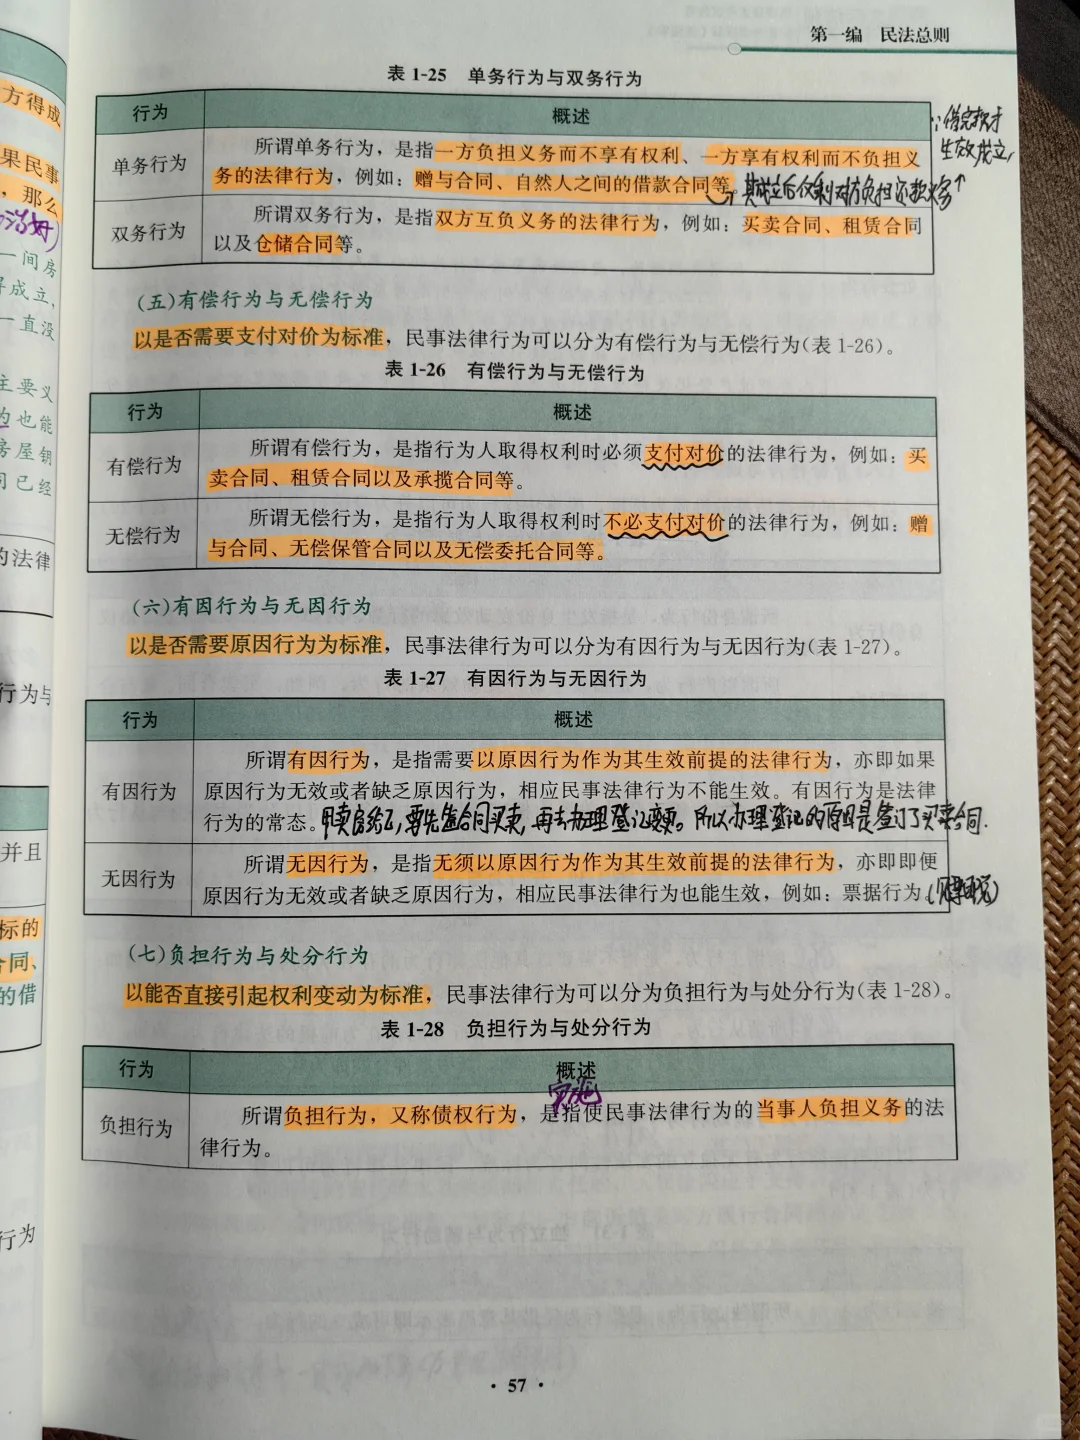 第一编 民法总则
表 1-25 单务行为与双务行为
行为 概述
单务行为
所谓单务行为，是指一方负担义务而不享有权利、一方享有权利而不负担义
务的法律行为，例如：赠与合同、自然人之间的借款合同等。
生效成立，
双务行为
所谓双务行为，是指双方互负义务的法律行为，例如：买卖合同、租赁合同
以及仓储合同等。
（五）有偿行为与无偿行为
以是否需要支付对价为标准，民事法律行为可以分为有偿行为与无偿行为（表 1-26）。
表 1-26 有偿行为与无偿行为
行为 概述
有偿行为
所谓有偿行为，是指行为人取得权利时必须支付对价的法律行为，例如：买
卖合同、租赁合同以及承揽合同等。
无偿行为
所谓无偿行为，是指行为人取得权利时不必支付对价的法律行为，例如：赠
与合同、无偿保管合同以及无偿委托合同等。
（六）有因行为与无因行为
以是否需要原因行为为标准，民事法律行为可以分为有因行为与无因行为（表 1-27）。
表 1-27 有因行为与无因行为
行为 概述
有因行为
所谓有因行为，是指需要以原因行为作为其生效前提的法律行为，亦即如果
原因行为无效或者缺乏原因行为，相应民事法律行为不能生效。有因行为是法律
行为的常态。甲卖房给乙，要先签合同买卖，再去办理登记变更。所以办理登记的原因是签订了买卖合同.
无因行为
所谓无因行为，是指无须以原因行为作为其生效前提的法律行为，亦即即便
原因行为无效或者缺乏原因行为，相应民事法律行为也能生效，例如：票据行为。
（七）负担行为与处分行为
以能否直接引起权利变动为标准，民事法律行为可以分为负担行为与处分行为（表 1-28）。
表 1-28 负担行为与处分行为
行为 概述
实施
负担行为
所谓负担行为，又称债权行为，是指使民事法律行为的当事人负担义务的法
律行为。
· 57 ·
方得成
果民事
，那么
一间房
得成立，
一直没
主要义
为也能
房屋钥
同已经
的法律
行为与
并且
标的
合同、
的借
行为